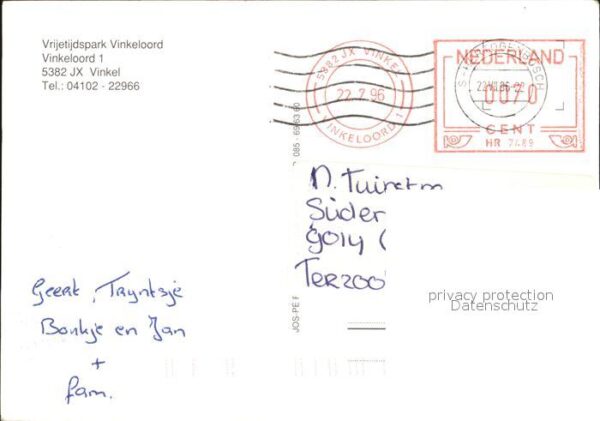 Vrijetijdspark Vinkeloord
Vinkeloord 1
5382 JX Vinkel
Tel.: 04102 - 22966
5382 JX VINKEL
22.7.96
VINKELOORD 1
NEDERLAND
0070
CENT
HR 7489
085
JOS-PÉ
N. Tuinstm
Süder
9014 (
Terzoo
privacy protection
Datenschutz
Geert, Tryntsje
Bonkje en Jan
+
fam.